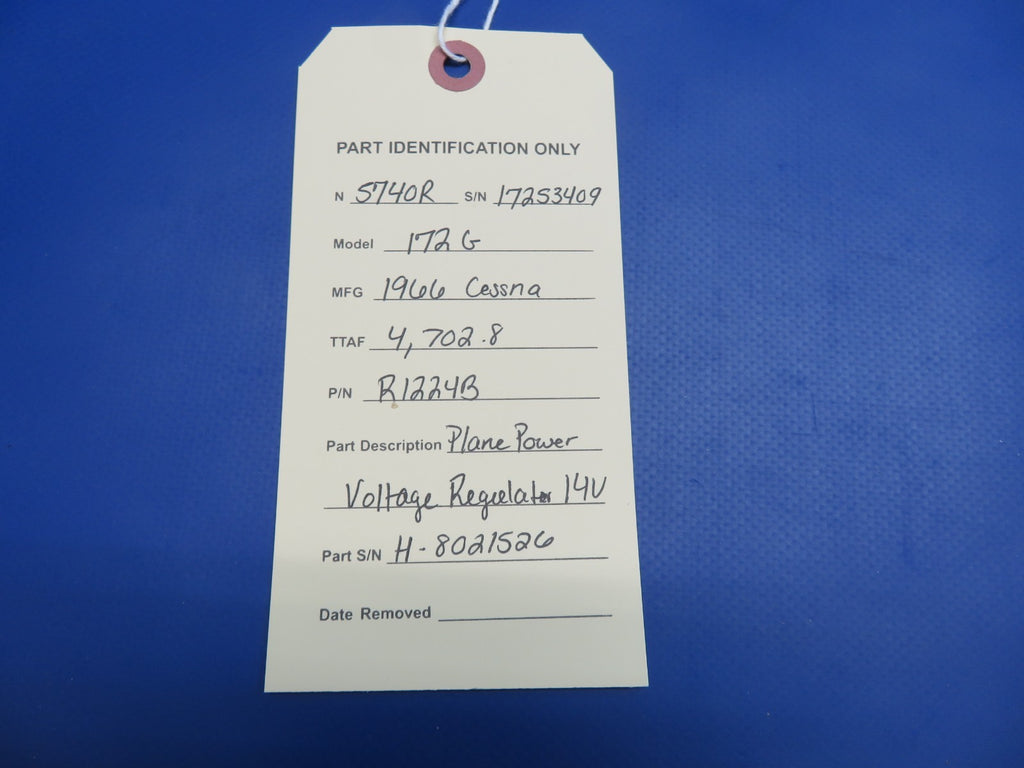 PART IDENTIFICATION ONLY
N 5740R S/N 17253409
Model 172 G
MFG 1966 Cessna
TTAF 4,702.8
P/N R1224B
Part Description Plane Power
Voltage Regulator 14V
Part S/N H-8021526
Date Removed